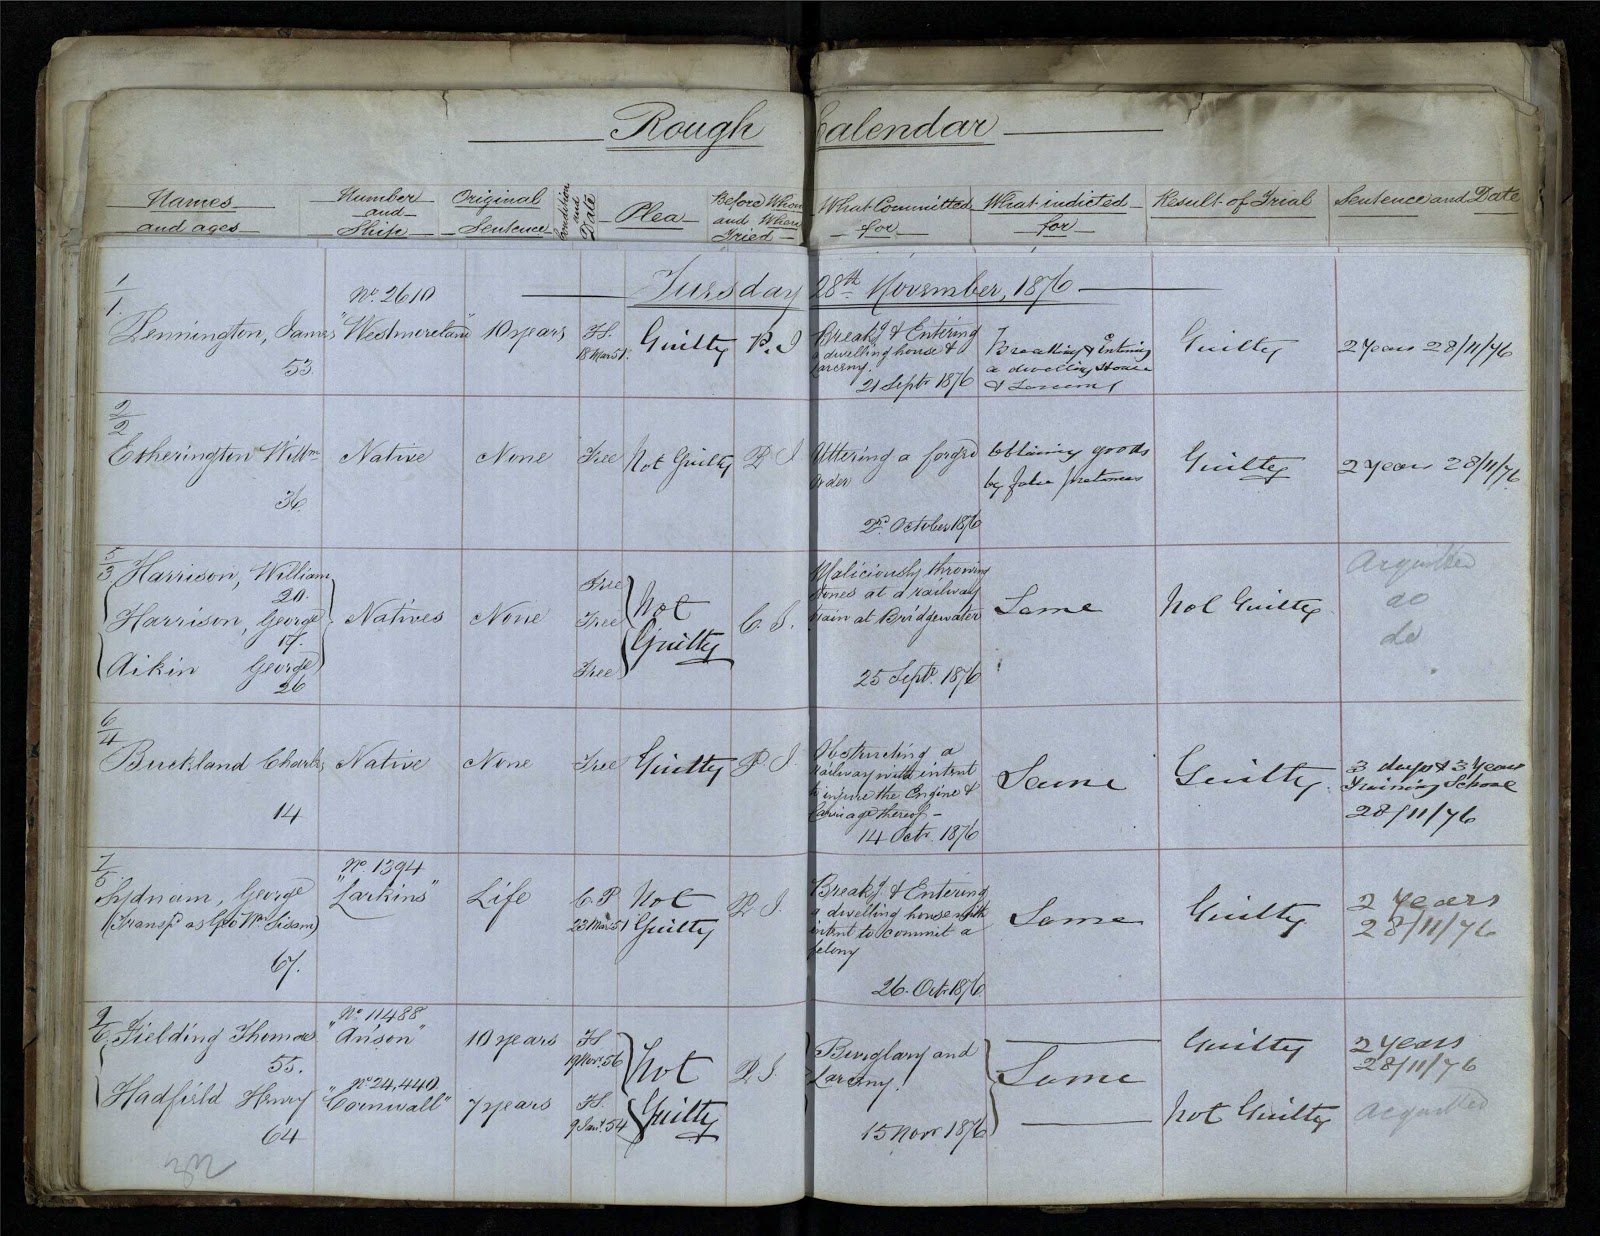 Rough Calendar
Names and ages
Number and Ship
Original Sentence
Condition and Date
Plea
Before Whom and When Tried
What Committed for
What indicted for
Result of Trial
Sentence and Date
Tuesday 28th November, 1876
1/1
No. 2610
Pennington, James "Westmoreland" 10 years F.S. Guilty P. J
53
18 Mar 51
Breakg & Entering
a dwelling house &
Larceny.
21 Septr 1876
Breaking & Entering
a dwelling House
& Larceny
Guilty
2 Years 28/11/76
2/2
Etherington Willm Native None Free Not Guilty P. J.
36
Uttering a forged
order
October 1876
Obtaining goods
by false pretences
Guilty
2 Years 28/11/76
5/3
Harrison, William
20.
Harrison, George
17.
Aikin George
26
Natives
None
Free
Free
Free
Not
Guilty
C. J.
Maliciously throwing
stones at a railway
train at Bridgewater
25 Septr. 1876
Same
Not Guilty
Acquitted
do
do
6/4
Buckland Charles Native None Free Guilty P. J.
14
Obstructing a
railway with intent
to injure the Engine &
Carriage thereof -
14 Octr. 1876
Same
Guilty
3 days & 3 Years
Training School
28/11/76
7/5
No. 1394
Sydnam, George "Larkins" Life C. P Not P. J.
(Transpd as Geo Wm Sisam)
23 Mar 51 Guilty
67.
Breakg & Entering
a dwelling house with
intent to commit a
felony
26. Octr 1876
Same
Guilty
2 Years
28/11/76
9/6
No. 11488
Fielding Thomas "Anson" 10 years F.S.
55.
19 Novr 56
No 24,440.
Hadfield Henry "Cornwall" 7 years F.S.
64
9 Jany. 54
Not
Guilty
P. J.
Burglary and
Larceny.
15 Novr 1876
Same
Guilty
2 Years
28/11/76
Not Guilty
Acquitted